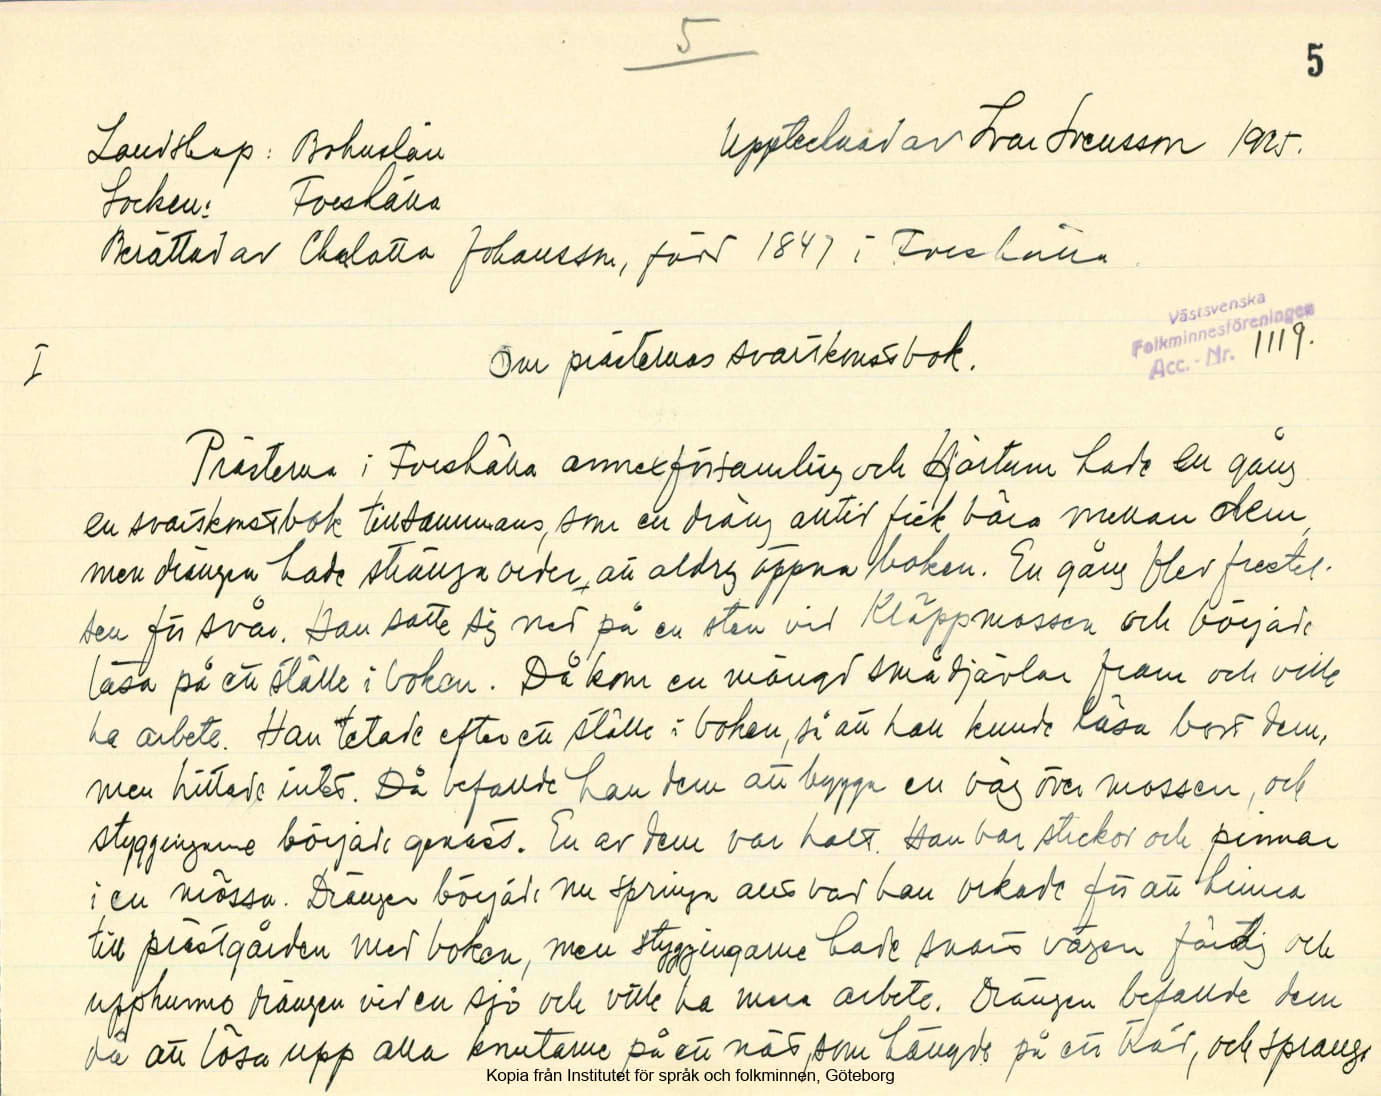 5
5
Landskap: Bohuslän
Upptecknad av Ivar Svensson 1925.
Socken: Foreshälla
Berättad av Chalotta Johansson, född 1847 i Foreshälla.
Västsvenska
Folkminnesföreningen
Acc. - Nr. 1119.
I
Om prästernas svartkonstbok.
Prästerna i Foreshälla annexförsamling och Hjärtum hade en gång
en svartkonstbok tillsammans, som en dräng alltid fick bära mellan dem,
men drängen hade stränga order att aldrig öppna boken. En gång blev frestel-
sen för svår. Han satte sig ned på en sten vid Kläppmossen och började
läsa på ett ställe i boken. Då kom en mängd smådjävlar fram och ville
ha arbete. Han letade efter ett ställe i boken, så att han kunde läsa bort dem,
men hittade intet. Då befallde han dem att bygga en väg över mossen, och
styggingarne började genast. En av dem var halt. Han bar stickor och pinnar
i en mössa. Drängen började nu springa allt vad han orkade för att hinna
till prästgården med boken, men styggingarne hade snart vägen färdig och
upphunno drängen vid en sjö och ville ha mera arbete. Drängen befallde dem
då att lösa upp alla knutarne på ett nät, som hängde på ett träd, och sprang
Kopia från Institutet för språk och folkminnen, Göteborg